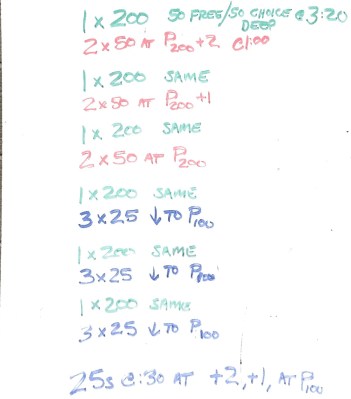 1 x 200 50 FREE/50 CHOICE @ 3:20
DEEP
2 x 50 AT P200 +2 @1:00
1 x 200 SAME
2 x 50 AT P200 +1
1 x 200 SAME
2 x 50 AT P200
1 x 200 SAME
3 x 25 ↓ TO P100
1 x 200 SAME
3 x 25 ↓ TO P100
1 x 200 SAME
3 x 25 ↓ TO P100
25s @ :30 AT +2, +1, AT P100